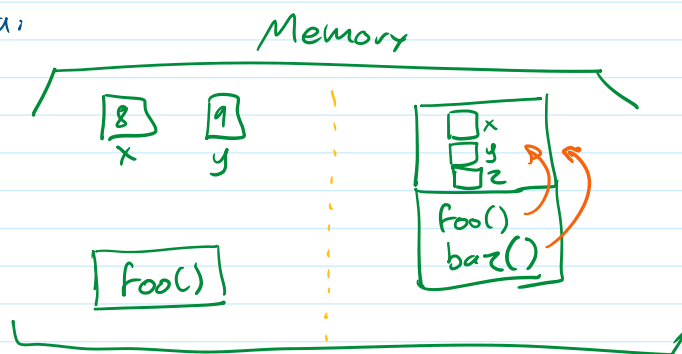 Memory
8 9
x y
foo()
x
y
z
foo()
baz()